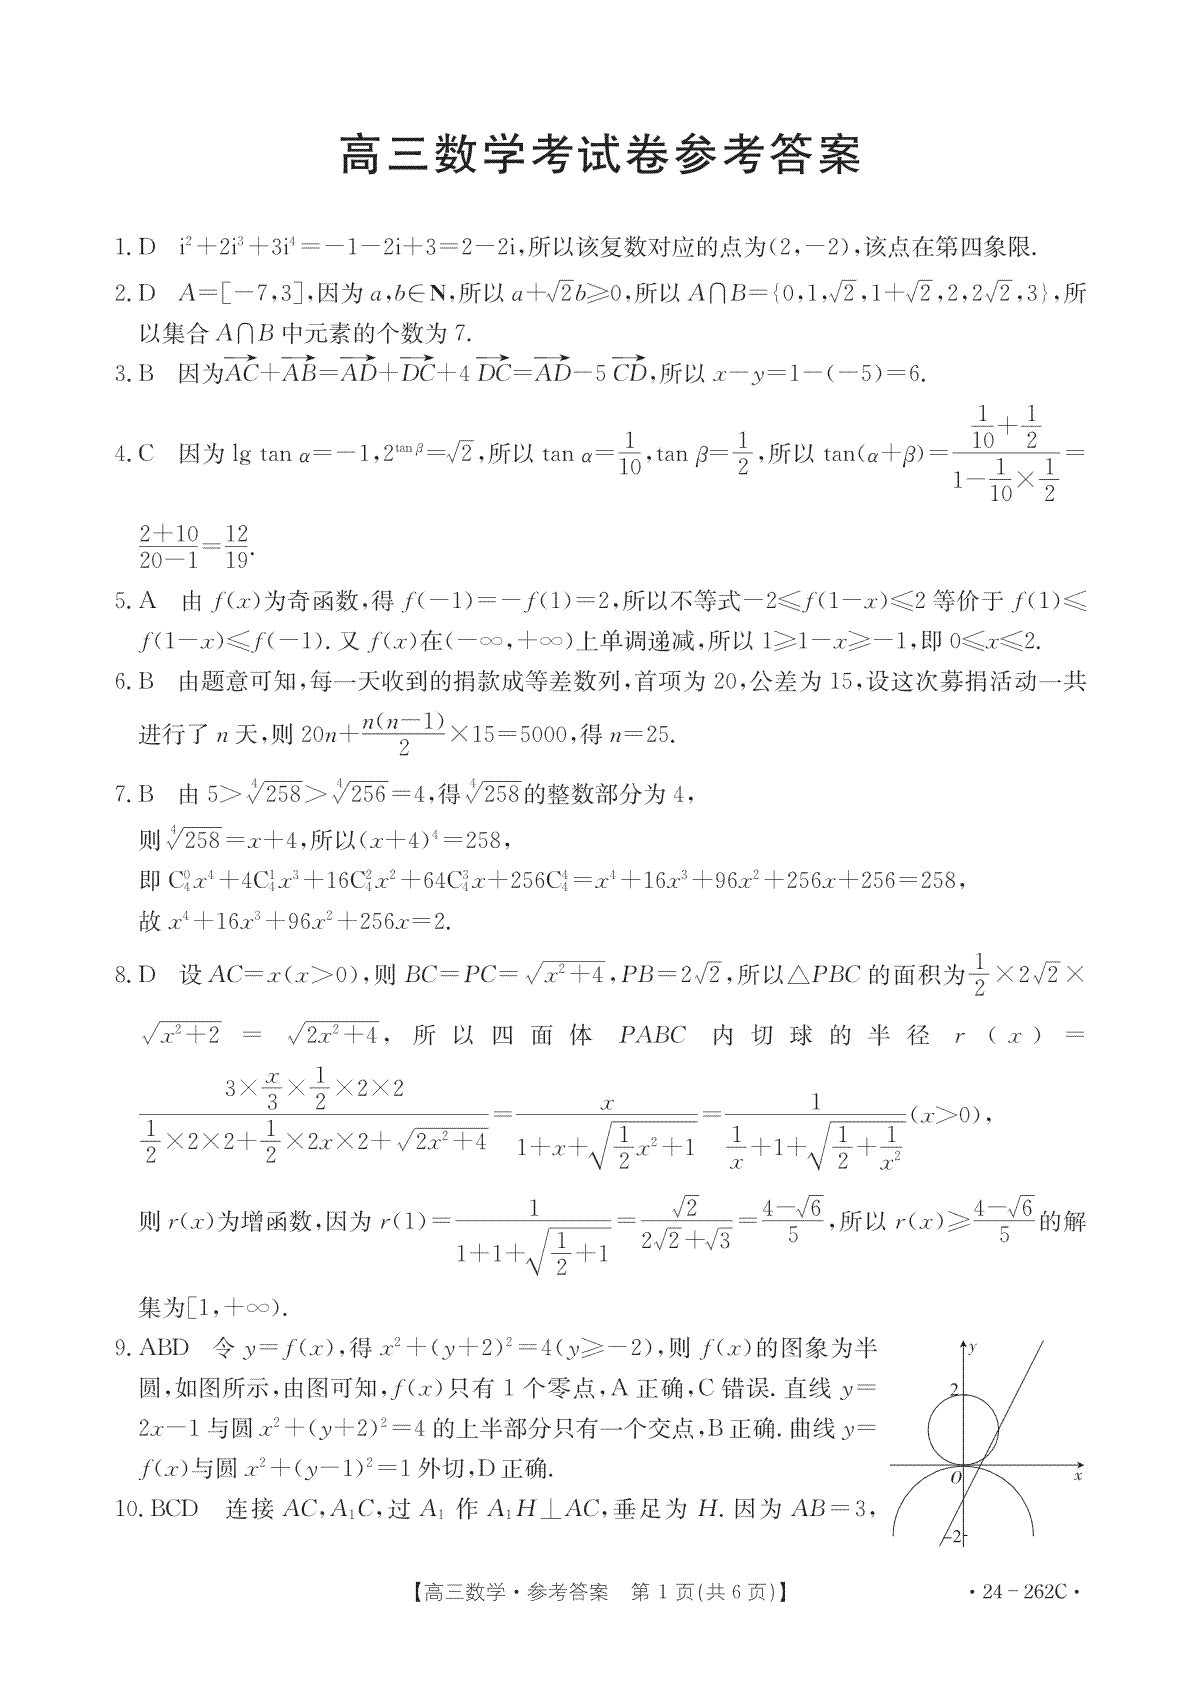 高三数学考试卷参考答案
1. D i²+2i³+3i⁴=-1-2i+3=2-2i,所以该复数对应的点为(2,-2),该点在第四象限.
2. D A=[-7,3],因为 a,b∈N,所以 a+√2b≥0,所以 A∩B={0,1,√2,1+√2,2,2√2,3},所
以集合 A∩B 中元素的个数为 7.
3. B 因为\overrightarrow{AC}+\overrightarrow{AB}=\overrightarrow{AD}+\overrightarrow{DC}+4\overrightarrow{DC}=\overrightarrow{AD}-5\overrightarrow{CD},所以 x-y=1-(-5)=6.
4. C 因为 lg tan α=-1,2^{tan β}=√2,所以 tan α=\frac{1}{10},tan β=\frac{1}{2},所以 tan(α+β)=\frac{\frac{1}{10}+\frac{1}{2}}{1-\frac{1}{10}×\frac{1}{2}}=
\frac{2+10}{20-1}=\frac{12}{19}.
5. A 由 f(x)为奇函数,得 f(-1)=-f(1)=2,所以不等式-2≤f(1-x)≤2 等价于 f(1)≤
f(1-x)≤f(-1). 又 f(x)在(-∞,+∞)上单调递减,所以 1≥1-x≥-1,即 0≤x≤2.
6. B 由题意可知,每一天收到的捐款成等差数列,首项为 20,公差为 15,设这次募捐活动一共
进行了 n 天,则 20n+\frac{n(n-1)}{2}×15=5000,得 n=25.
7. B 由 5>\sqrt[4]{258}>\sqrt[4]{256}=4,得\sqrt[4]{258}的整数部分为 4,
则\sqrt[4]{258}=x+4,所以(x+4)⁴=258,
即 C_4^0x⁴+4C_4^1x³+16C_4^2x²+64C_4^3x+256C_4^4=x⁴+16x³+96x²+256x+256=258,
故 x⁴+16x³+96x²+256x=2.
8. D 设 AC=x(x>0),则 BC=PC=\sqrt{x²+4},PB=2√2,所以△PBC 的面积为\frac{1}{2}×2√2×
\sqrt{x²+2} = \sqrt{2x²+4}, 所以四面体 PABC 内切球的半径 r(x)=
\frac{3×\frac{x}{3}×\frac{1}{2}×2×2}{\frac{1}{2}×2×2+\frac{1}{2}×2x×2+\sqrt{2x²+4}}=\frac{x}{1+x+\sqrt{\frac{1}{2}x²+1}}=\frac{1}{\frac{1}{x}+1+\sqrt{\frac{1}{2}+\frac{1}{x²}}}(x>0),
则 r(x)为增函数,因为 r(1)=\frac{1}{1+1+\sqrt{\frac{1}{2}+1}}=\frac{√2}{2√2+√3}=\frac{4-√6}{5},所以 r(x)≥\frac{4-√6}{5}的解
集为[1,+∞).
9. ABD 令 y=f(x),得 x²+(y+2)²=4(y≥-2),则 f(x)的图象为半
圆,如图所示,由图可知,f(x)只有 1 个零点,A 正确,C 错误. 直线 y=
2x-1 与圆 x²+(y+2)²=4 的上半部分只有一个交点,B 正确. 曲线 y=
f(x)与圆 x²+(y-1)²=1 外切,D 正确.
y
2
O
x
-2
10. BCD 连接 AC,A₁C,过 A₁ 作 A₁H⊥AC,垂足为 H. 因为 AB=3,
【高三数学·参考答案 第 1 页(共 6 页)】
·24-262C·